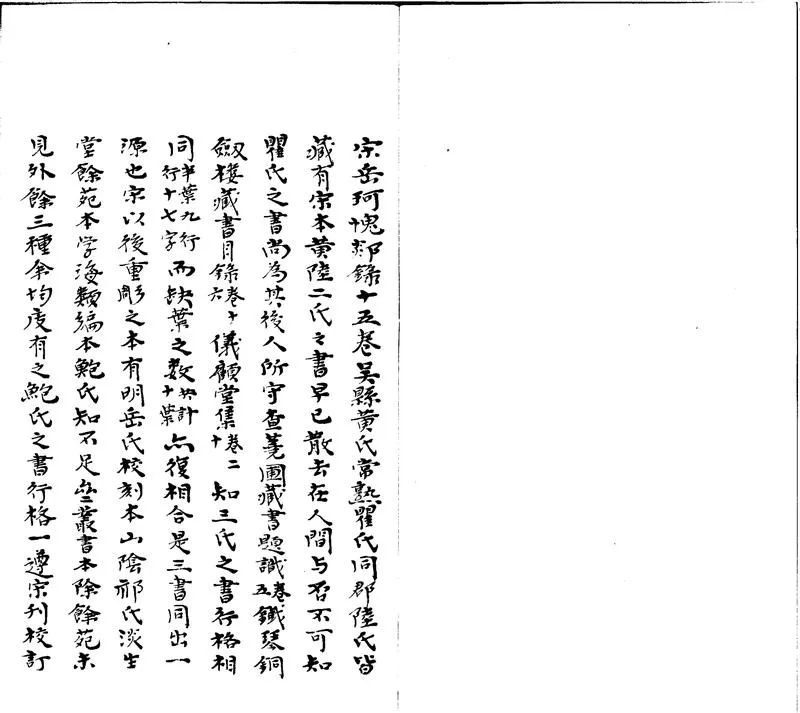 宗岳珂愧郯錄十五卷吴縣黄氏常熟瞿氏同郡陸氏皆
藏有宗本黄陸二氏之書早已散去在人間与否不可知
瞿氏之書尚為其後人所守查蕘圃藏書題識卷五鐵琴銅
劔樓藏書目錄卷十六儀顧堂集卷二十知三氏之書行格相
同半葉九行行十七字而缺葉之数共計十葉亦復相合是三書同出一
源也宗以後重彫之本有明岳氏校刻本山陰祁氏淡生
堂餘苑本学海類編本鮑氏知不足齋叢書本除餘苑未
見外餘三種余均庋有之鮑氏之書行格一遵宗刋校訂